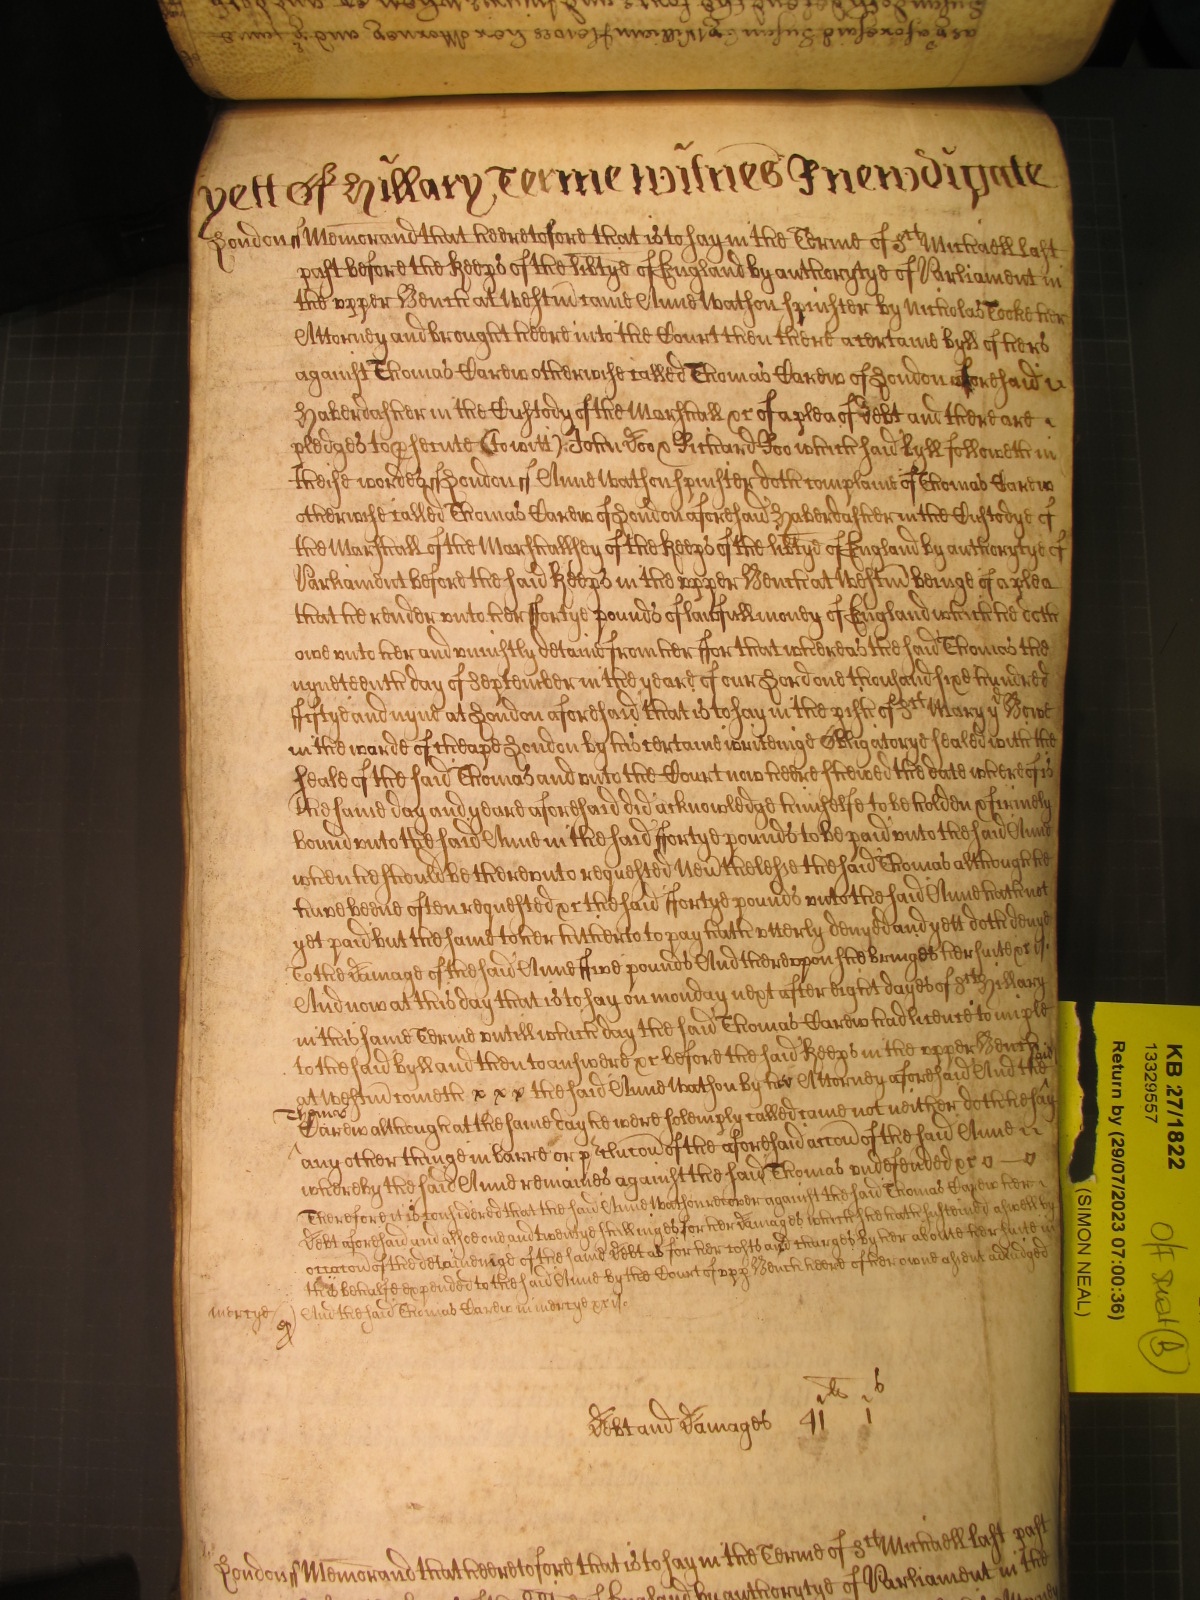 yett Of Hillary Terme witnes R newdigate
London ss Memorand that heeretofore that is to say in the Terme of St Michaell last
past before the Keeps of the libtye of England by authorytye of Parliament in
the upper Bench at Westm came Anne Wathon spinster by Nicholas Cooke her
Attorney and brought heere into the Court then there a certaine byll of hers
against Thomas Carew otherwise called Thomas Carew of London aforesaid
Haberdasher in the Custody of the Marshall &c of a plea of Debt and there are
pledges to psecute (to witt) John Doo & Richard Roo which said byll followeth in
theise wordes ss London ss Anne Wathon spinster doth complaine of Thomas Carew
otherwise called Thomas Carew of London aforesaid Haberdasher in the Custodye of
the Marshall of the Marshallsey of the Keeps of the libtye of England by authorytye of
Parliament before the said Keeps in the upper Bench at Westm beinge of a plea
that he render unto her ffortye pounds of lawfull money of England which he doth
owe unto her and uniustly detaine from her ffor that whereas the said Thomas the
nyneteenth day of September in the yeare of our Lord one thousand sixe hundred
ffiftye and nyne at London aforesaid that is to say in the pish of St Mary ye Bowe
in the warde of cheape London by his certaine writeinge Obligatorye sealed with the
seale of the said Thomas and unto the Court now heere shewed the date whereof is
the same day and yeare aforesaid did acknowledge himselfe to be holden & firmely
bound unto the said Anne in the said ffortye pounds to be paid unto the said Anne
when he should be thereunto requested Nevthelesse the said Thomas although he
have beene often requested &c the said ffortye pounds unto the said Anne hath not
yet paid but the same to her hitherto to pay hath utterly denyed and yett doth denye
To the damage of the said Anne ffive pounds And thereupon she bringes her suite &c
And now at this day that is to say on monday next after eight dayes of St Hillary
in this same Terme untill which day the said Thomas Carew had licence to imple
to the said byll and then to answere &c before the said Keeps in the upper Bench
at Westm cometh x x x the said Anne Wathon by her Attorney aforesaid And the said
Thomas
Carew although at the same day he were solemply called came not neither doth he say
any other thinge in barre or pclucon of the aforesaid accon of the said Anne
whereby the said Anne remaines against the said Thomas undefended &c
Therefore it is considered that the said Anne Wathon recover against the said Thomas Carew her
Debt aforesaid and alsoe one and twentye shillinges for her damages which she hath susteined aswell by
occacon of the detaineinge of the same Debt as for her costs and charges by her aboute her suite in
this behalfe expended to the said Anne by the Court of upp Bench heere of her owne assent adiudged
mercye And the said Thomas Carew in mercye &c
li s
Debt and Damages 41 1
London ss Memorand that heeretofore that is to say in the Terme of St Michaell last past
of England by authorytye of Parliament in the
KB 27/1822
13329557
Return by (29/07/2023 07:00:36)
(SIMON NEAL)